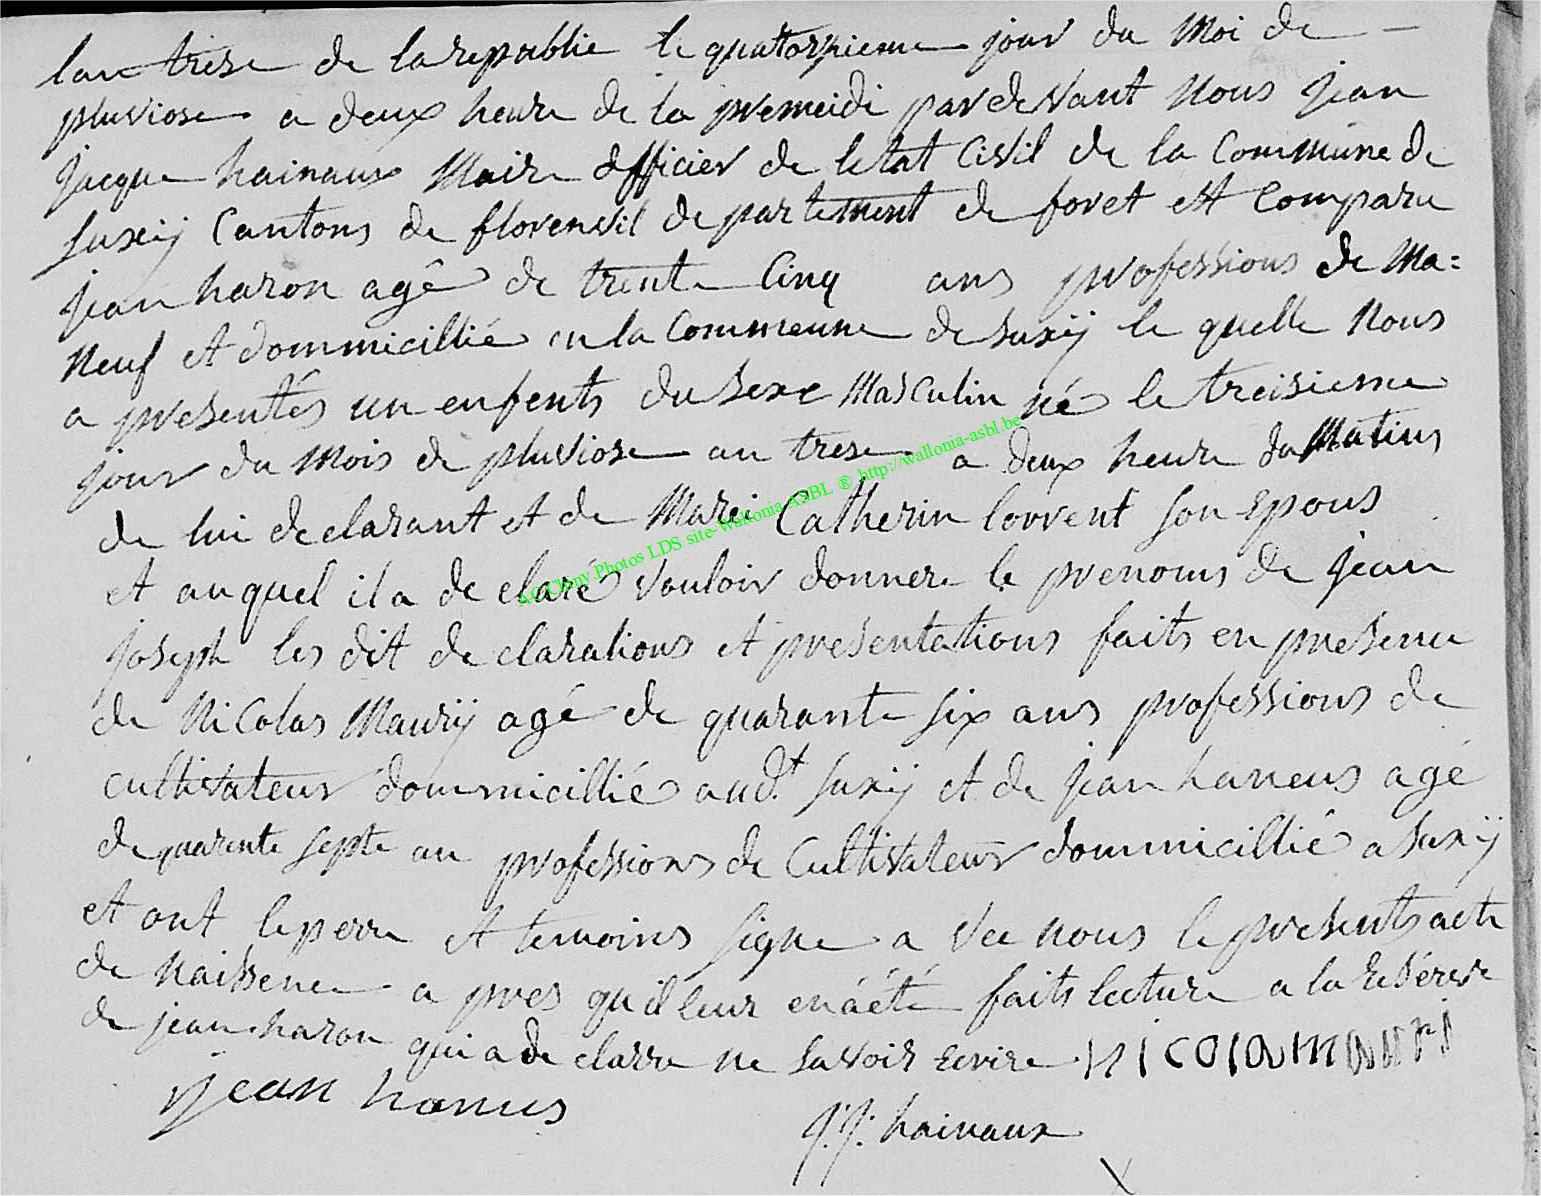 lan trese de la republie le quatorzieme jour du Moi de
pluviose a deux heure de la premeidi par devant Nous jean
jacque hainaux Maire officier de letat Civil de la Commune de
Suxÿ Cantons de florenvil departement de foret est Comparu
jean haron agé de trente Cinq ans professions de Ma=
Neuf et dommicillié en la Commeune de Suxÿ le quelle Nous
a presentés un enfents du Sexe Masculin né le treisieme
jour du Mois de pluviose an trese a deux heure du Matins
de lui declarant et de Marei Catherin lorrent son Epous
et auquel il a de claré vouloir donnere le prenoms de jean
joseph les dit de clarations et presentations faits en presence
de Nicolas Maurÿ agé de quarante six ans professions de
cultivateur dommicillié aud.t Suxÿ et de jean haneus agé
de quarente septe an professions de Cultivateur dommicillié a Suxÿ
et ont le perre et temoins signe a vec nous le presents acte
de Naissence a pres quil leur en a été faits lecture a la Reserve
de jean haron qui a de clarre ne savoir Ecrire nicola mauri
jean hanus
J:J: hainaux
ACGOony Photos LDS site-Wallonia ASBL ® http://wallonia-asbl.be